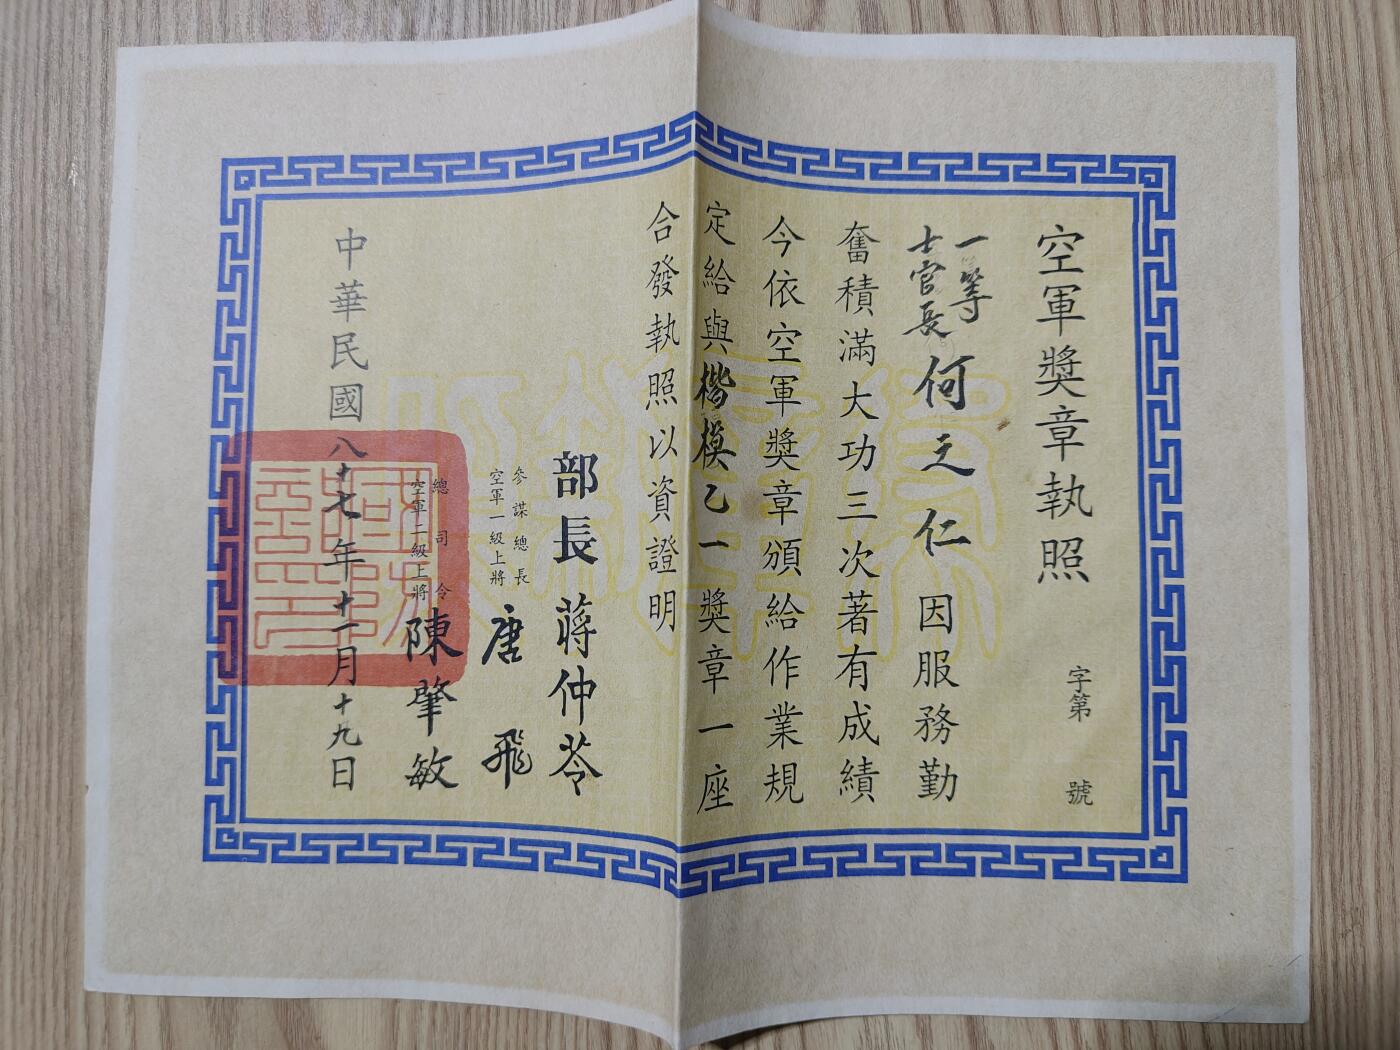 空軍獎章執照
字第　號
一等
士官長
何之仁因服務勤
奮積滿大功三次著有成績
今依空軍獎章頒給作業規
定給與楷模乙一獎章一座
合發執照以資證明
部長蔣仲苓
參謀總長
空軍一級上將
唐飛
總司令
空軍二級上將
陳肇敏
中華民國八十七年十一月十九日